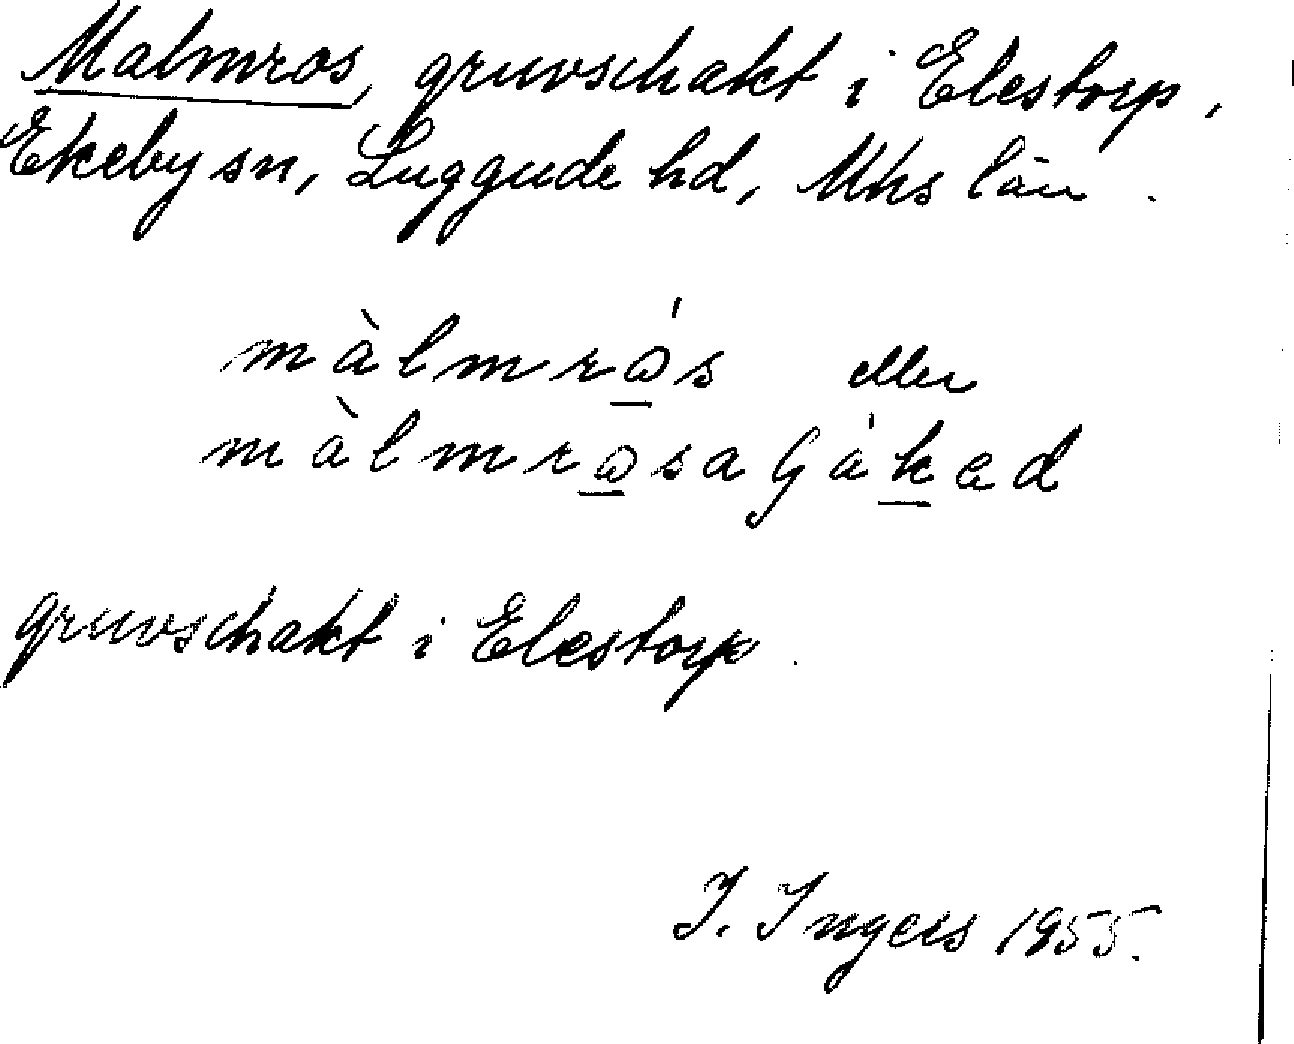 Malmros, gruvschakt i Elestorp,
Ekeby sn, Luggude hd, Mhs län.
màlmro̲s eller
màlmro̲saʃák̲ad
gruvschakt i Elestorp.
I. Ingers 1955.